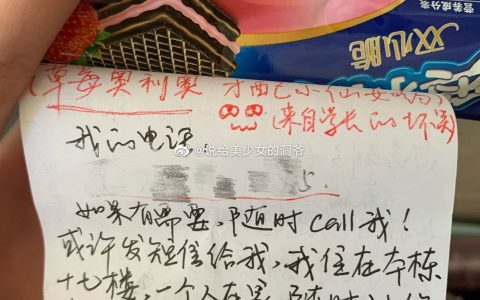 营养成分表
双心脆
(草莓奥利奥 才配已小仙女的)
(来自学长的坏笑
我的电话
@说给美少女的洞爷
5.
如果有需要,随时call我!
或许发短信给我,我住在本栋
十七楼,一个人在家,随时